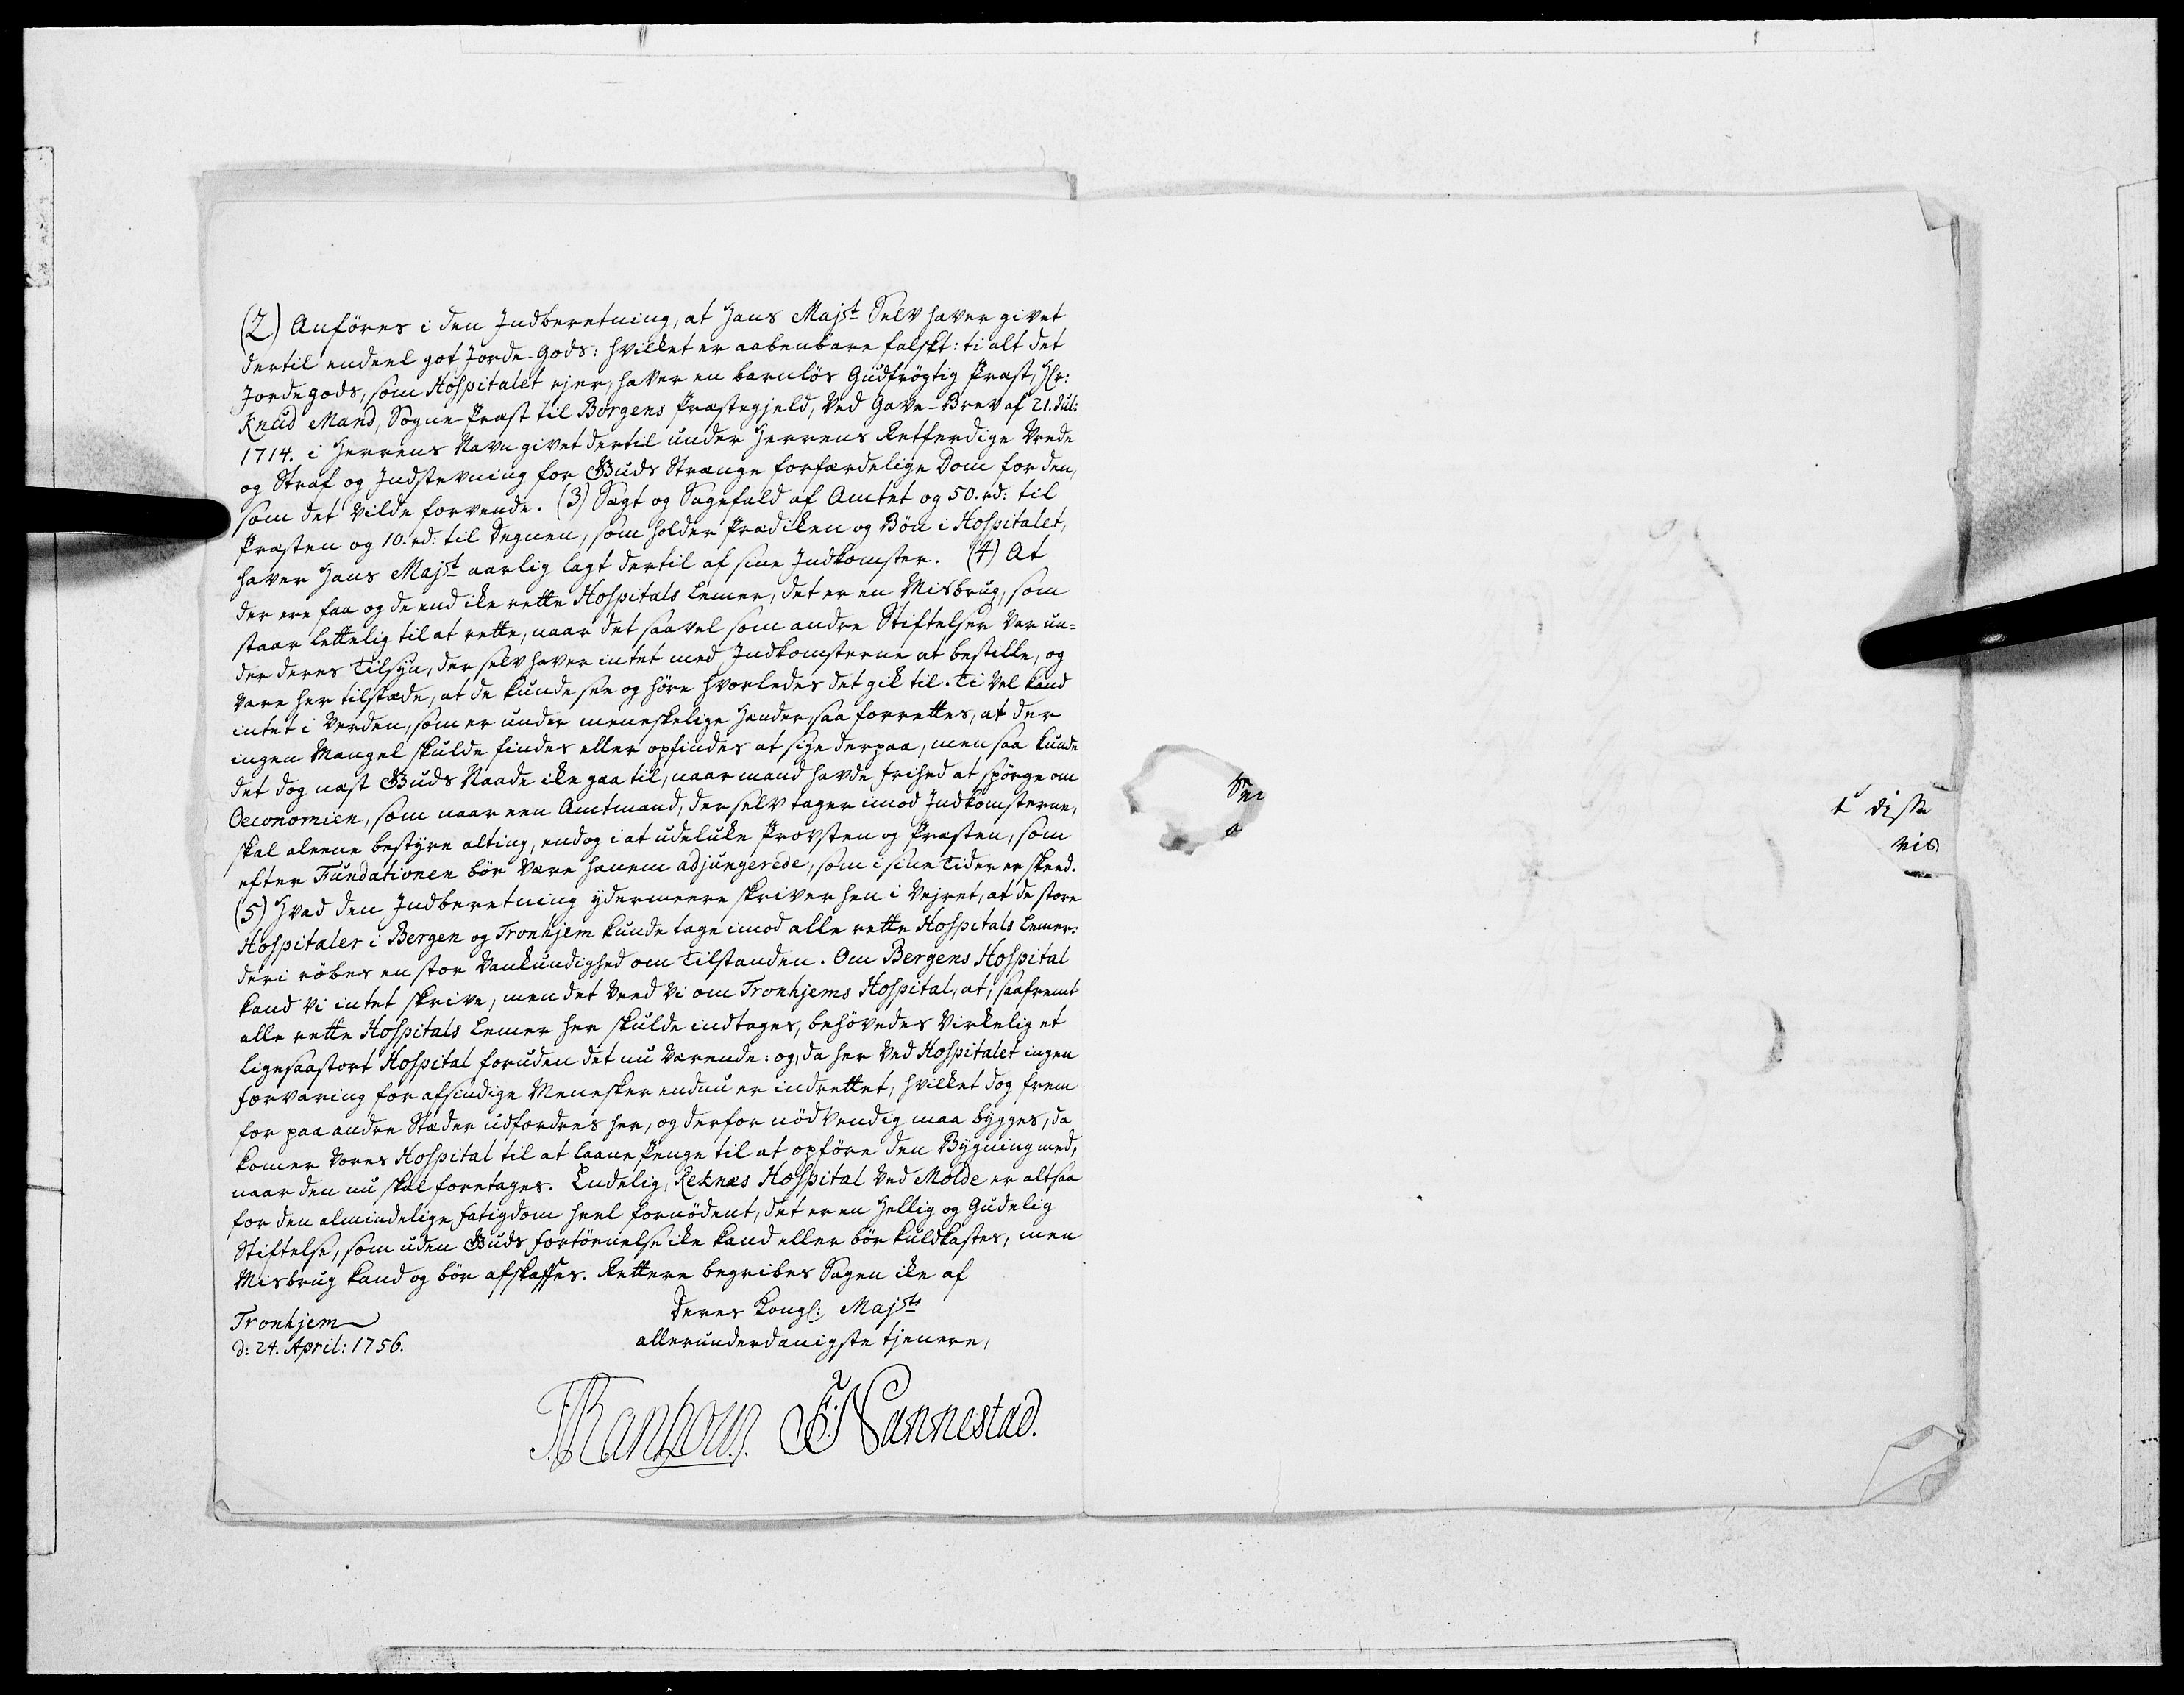 (2) Anföres i den Indberetning, at Hans Majst Selv haver givet
dertil endeel got Jorde-Gods: hvilket er aabenbare falskt: ti alt det
Jordegods, som Hospitalet ejer, haver en barnlös Gudfrögtig Præst, Hr:
Knud Mand, Sogne-Præst til Borgens Præstegjeld, Ved Gave-Brev af 21. Jul:
1714. i Herrens Navn givet dertil under Herrens Retferdige Vrede
og Straf og Indstevning for Guds Strænge forfærdelige Dom for den,
som det vilde forvende. (3) Sagt og Sagefald af Amtet og 50. rd: til
Præsten og 10. rd: til Degnen, som holder Prædiken og Bön i Hospitalet,
haver Hans Majst aarlig lagt dertil af sine Indkomster. (4) At
der ere faa og de end ike rette Hospitals Lemer, det er en Misbrug, som
staar lettelig til at rette, naar det saavel som andre Stiftelser Var un=
der deres Tilsyn, der selv haver intet med Indkomsterne at bestille, og
vare her tilstæde, at de kunde see og höre hvorledes det gik til. Ti Vel kand
intet i Verden, som er under meneskelige Hænder, saa forrettes, at der
ingen Mangel skulde findes eller opfindes at sige derpaa, men saa kunde
det dog næst Guds Naade ike gaa til, naar mand havde frihed at spörge om
Oeconomien, som naar een Amtmand, der selv tager imod Indkomsterne,
skal aleene bestyre alting, endog i at udeluke Provsten og Præsten, som
efter Fundationen bör Være hanem adjungerede, som i sine Tider er skeed.
(5) Hvad den Indberetning ydermeere skriver hen i Vejret, at de store
Hospitaler i Bergen og Tronhjem kunde tage imod alle rette Hospitals Lemer:
deri röbes en stor Vankundighed om Tilstanden. Om Bergens Hospital
kand Vi intet skrive, men det Veed Vi om Tronhjems Hospital, at, saafremt
alle rette Hospitals Lemer her skulde indtages, behövedes Virkelig et
ligesaastort Hospital foruden det nu Værende: og, da her Ved Hospitalet ingen
forvaring for afsindige Menesker endnu er indrettet, hvilket dog frem
for paa andre Stæder udfordres her, og derfor nödvendig maa bygges, da
komer Vores Hospital til at laane Penge til at opföre den Bygning med,
naar den nu skal foretages. Endelig, Reknæs Hospital Ved Molde er altsaa
for den almindelige fatigdom heel fornödent, det er en Hellig og Gudelig
Stiftelse, som uden Guds fortörnelse ike kand eller bör kuldkastes, men
Misbrug kand og bör afskaffes. Rettere begribes Sagen ike af
Deres Kongl: Majsts
Tronhjem
allerunderdanigste tjenere,
d: 24. April: 1756.
Rantzow. F: Nannestad.